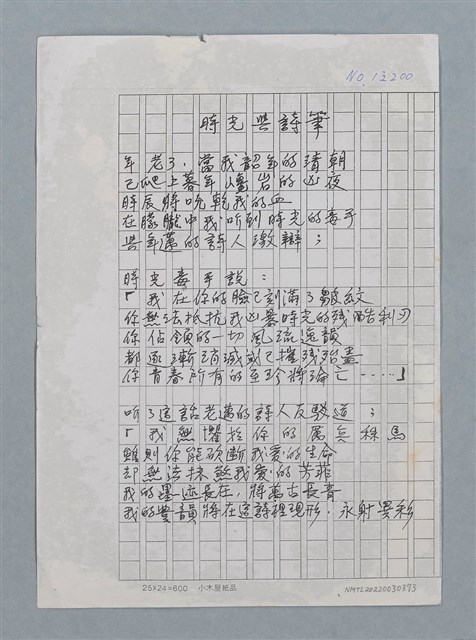 NO. 13200
時光與詩筆
年老了，當我韶年的清朝
已爬上暮年巉岩的凶夜
時辰將吮乾我的血
在朦朧中我听到時光的毒手
與年邁的詩人激辯：
時光毒手說：
「我在你的臉已刻滿了皺紋
你無法抵抗我凶暴時光的殘酷利刃
你佔領的一切風流逸韻
都逐漸消滅或已摧殘殆盡
你青春所有的至珍將淪亡……」
听了這話老邁的詩人反駁道：
「我無懼於你的厲兵秣馬
雖則你能砍斷我愛的生命
却無法抹煞我愛的芳菲
我的墨迹長在，將萬古長青
我的豐韻將在這詩裡現形，永射異彩
25×24=600 小木屋紙品
NMTL20220030373